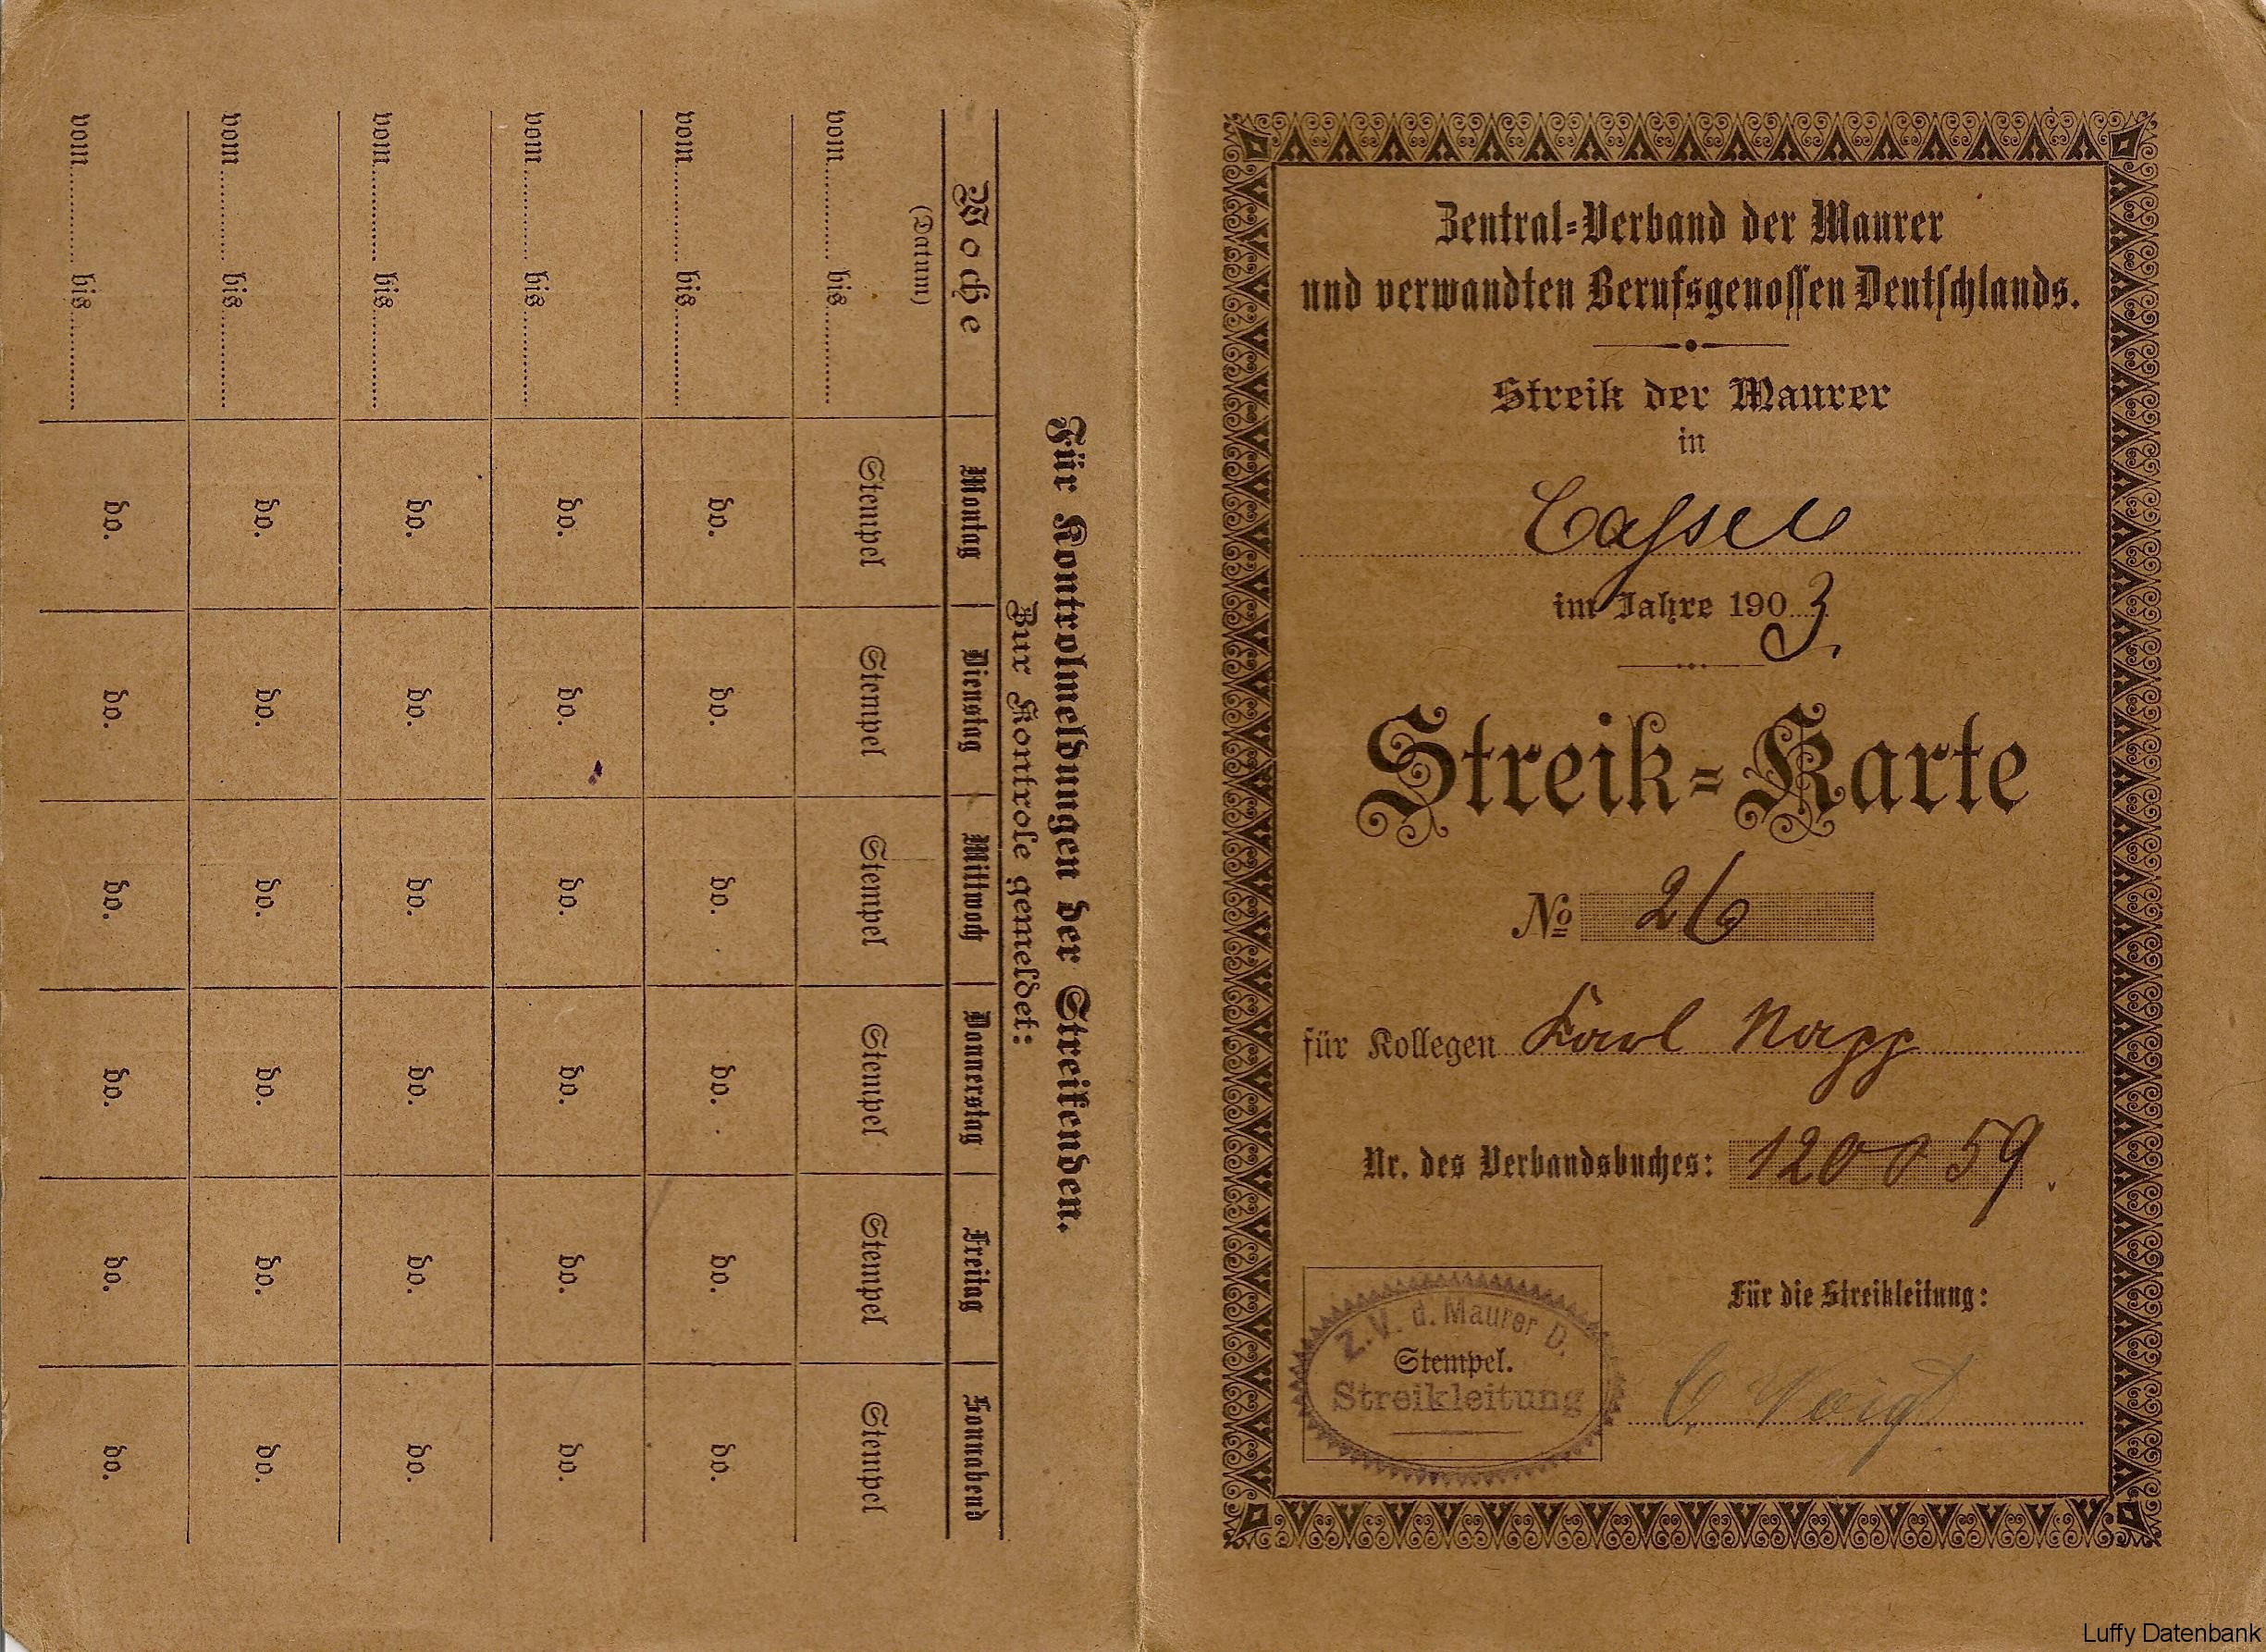 Für Kontrolmeldungen der Streikenden.
Zur Kontrole gemeldet:
Woche Montag Dienstag Mittwoch Donnerstag Freitag Sonnabend
(Datum)
vom bis Stempel Stempel Stempel Stempel Stempel Stempel
vom bis do. do. do. do. do. do.
vom bis do. do. do. do. do. do.
vom bis do. do. do. do. do. do.
vom bis do. do. do. do. do. do.
vom bis do. do. do. do. do. do.
Zentral=Verband der Maurer
und verwandten Berufsgenossen Deutschlands.
Streik der Maurer
in
Cassel
im Jahre 1903.
Streik=Karte
No 26
für Kollegen Karl Napp
Nr. des Verbandsbuches: 120059.
Für die Streikleitung:
Z.V. d. Maurer D.
Stempel.
Streikleitung
C. Voigt
Luffy Datenbank